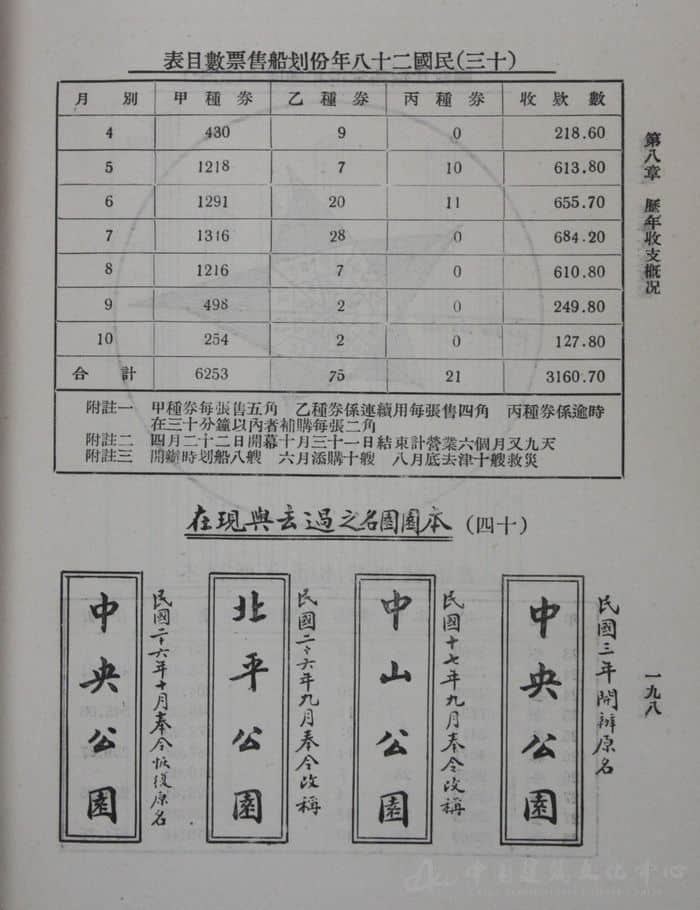 (十三)民國二十八年份划船售票數目表
月別 甲種券 乙種券 丙種券 收欵數
4 430 9 0 218.60
5 1218 7 10 613.80
6 1291 20 11 655.70
7 1316 28 0 684.20
8 1216 7 0 610.80
9 498 2 0 249.80
10 254 2 0 127.80
合計 6253 75 21 3160.70
附註一 甲種券每張售五角 乙種券係連續用每張售四角 丙種券係逾時
在三十分鐘以內者補購每張二角
附註二 四月二十二日開幕十月三十一日結束計營業六個月又九天
附註三 開辦時划船八艘 六月添購十艘 八月底去津十艘救災
(十四)本園園名之過去與現在
民國三年開辦原名
中央公園
民國十七年九月奉令改稱
中山公園
民國二十六年九月奉令改稱
北平公園
民國二十六年十月奉令恢復原名
中央公園
第八章 歷年收支概況
一九八
中国建筑文化中心